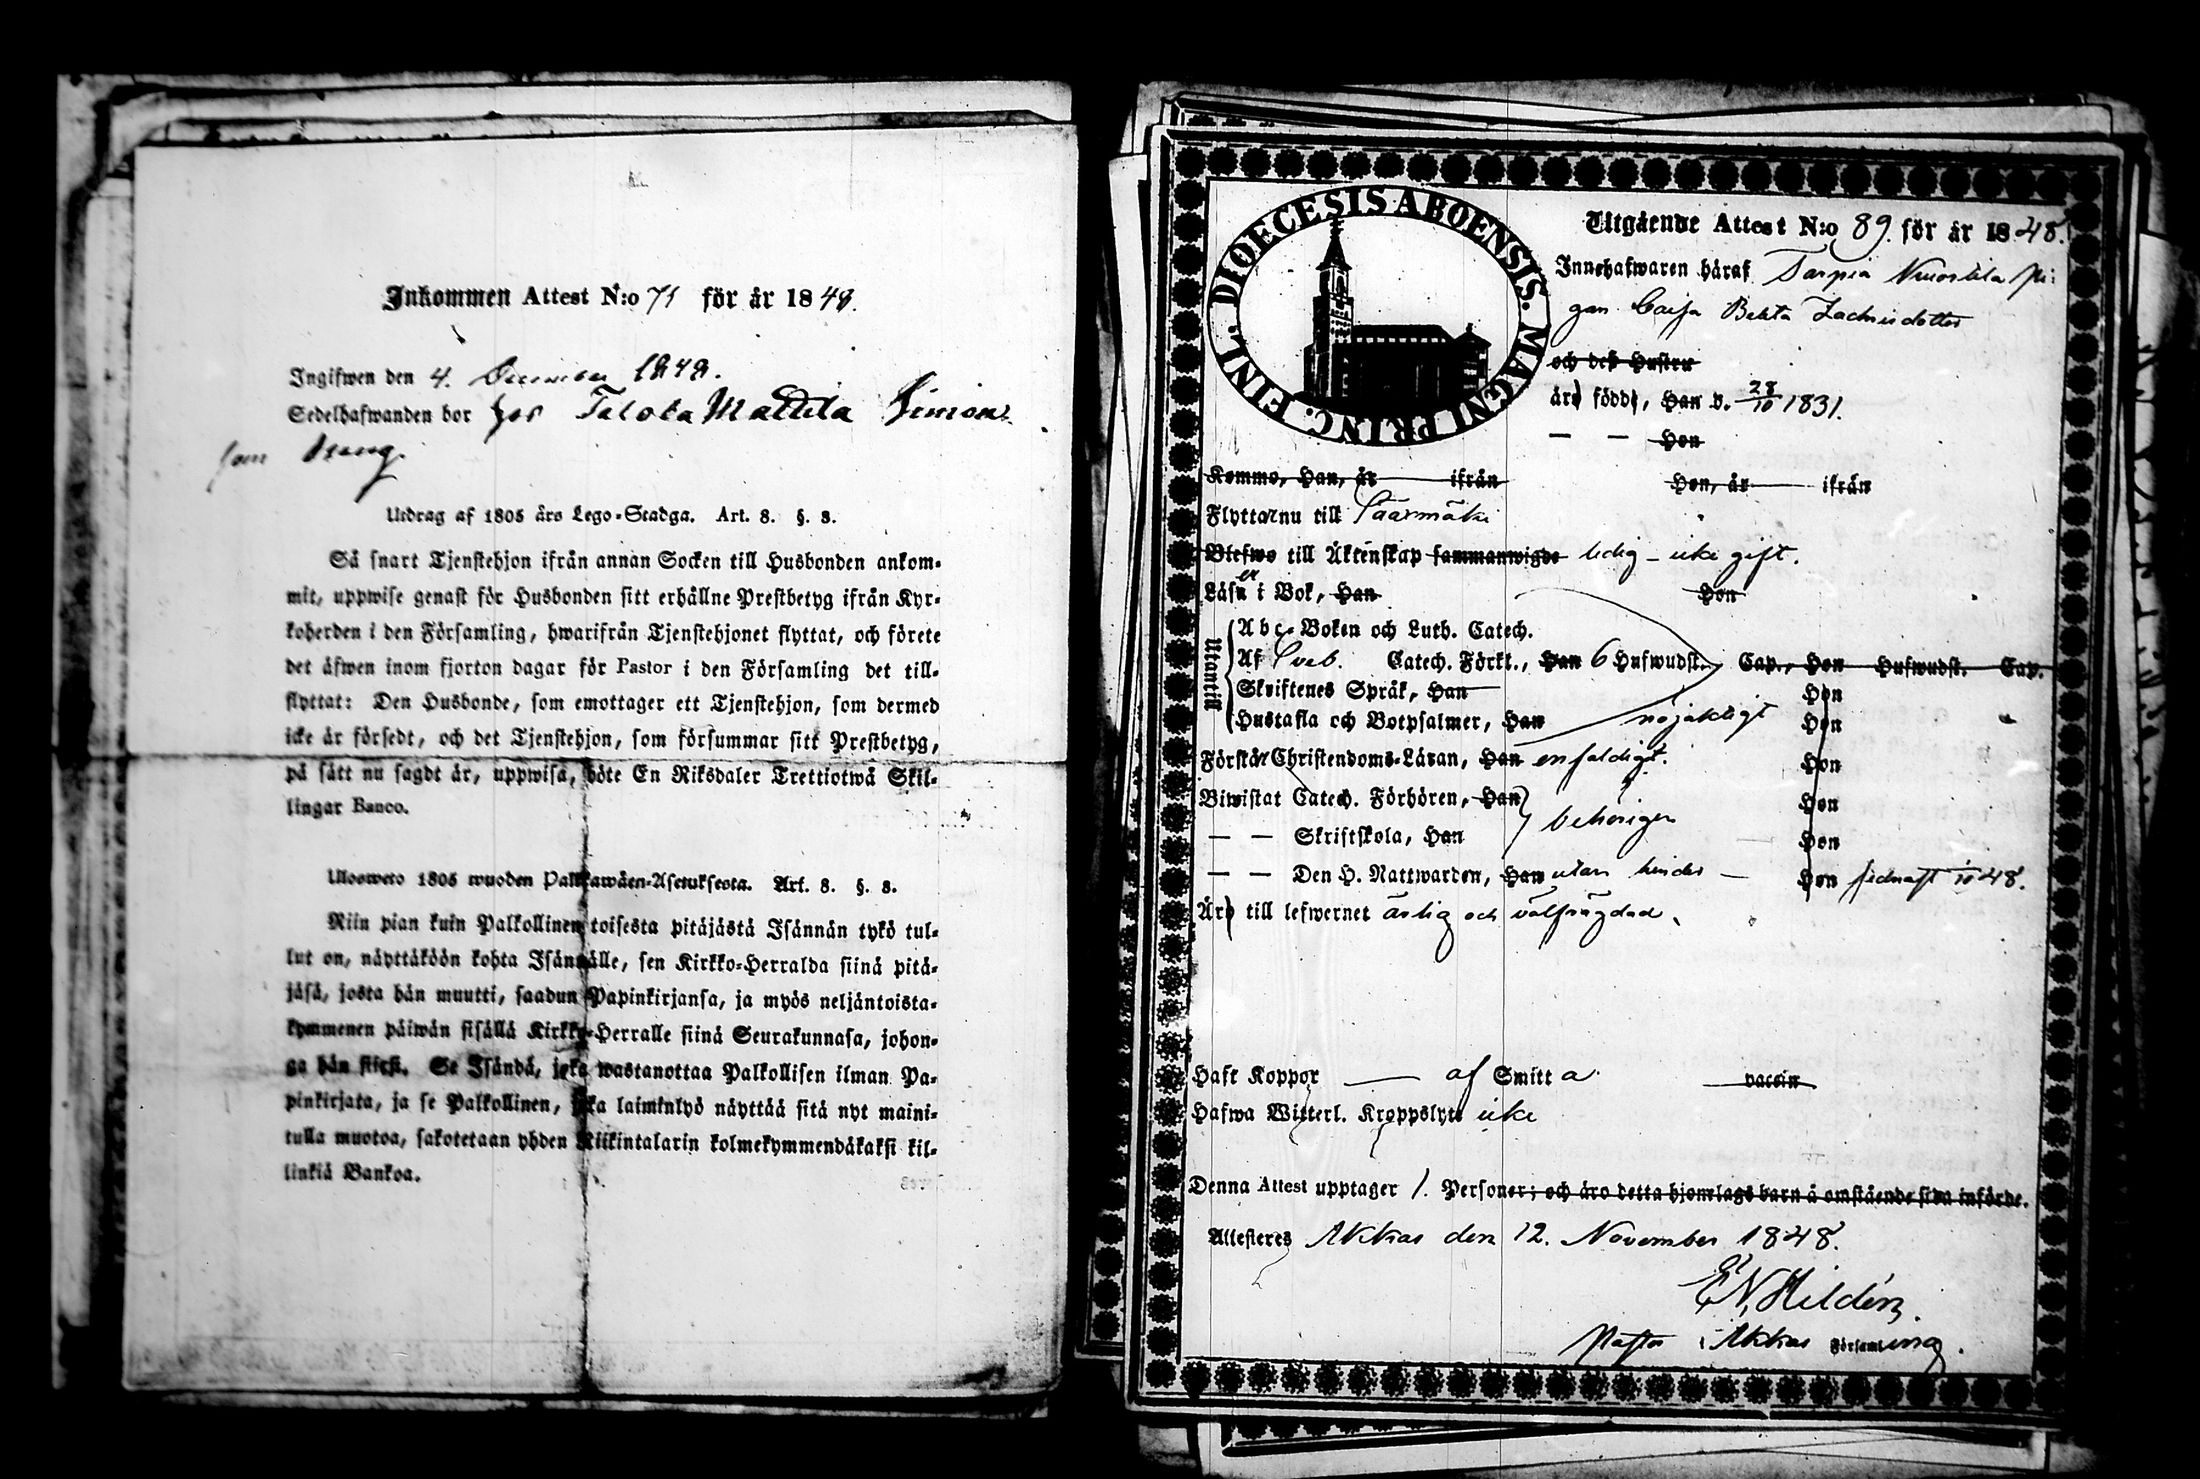 Inkommen Attest N:o 71 för år 1848.
Ingifwen den 4. December 1848.
Sedelhafwanden bor hos Talola Mattila Simons
som dräng.
Utdrag af 1805 års Lego-Stadga. Art. 8. §. 8.
Så snart Tjenstehjon ifrån annan Socken till Husbonden ankom-
mit, uppwise genast för Husbonden sitt erhållne Prestbetyg ifrån Kyr-
koherden i den Församling, hwarifrån Tjenstehjonet flyttat, och förete
det äfwen inom fjorton dagar för Pastor i den Församling det till-
flyttat: Den Husbonde, som emottager ett Tjenstehjon, som dermed
icke är försedt, och det Tjenstehjon, som försummar sitt Prestbetyg,
på sätt nu sagdt är, uppwisa, böte En Riksdaler Trettiotwå Skil-
lingar Banco.
Ulosweto 1805 wuoden Palkkawäen-Asetuksesta. Art. 8. §. 8.
Niin pian kuin Palkollinen toisesta pitäjästä Isännän tykö tul-
lut on, näyttäköön kohta Isännälle, sen Kirkko-Herralda siinä pitä-
jäsä, josta hän muutti, saadun Papinkirjansa, ja myös neljäntoista-
kymmenen päiwän sisällä Kirkko-Herralle siinä Seurakunnasa, johon-
ga hän siirsi. Se Isändä, joka wastanottaa Palkollisen ilman Pa-
pinkirjata, ja se Palkollinen, joka laiminlyö näyttää sitä nyt maini-
tulla muotoa, sakotetaan yhden Riikintalarin kolmekymmendäkaksi kil-
linkiä Bankoa.
DIOECESIS ABOENSIS. MAGNI PRINC. FINL.
Utgående Attest N:o 89. för år 1848.
Innehafwaren häraf Tarpia Nuortila pi-
gan Caisa Beata Zachrisdotter
och deß Hustru
äro födde, Han d. 28/10 1831.
— — Hon
Kommo, Han, år ifrån Hon, år ifrån
Flyttar nu till Säärmäki
Blefwo till Äktenskap sammanwigde ledig – icke gift.
Läser i Bok, Han Hon
Utantill
Abc-Boken och Luth. Catech.
Af Sveb. Catech. Förkl., Han 6 Hufwudst. Cap., Hon Hufwudst. Cap.
Skriftenes Språk, Han Hon
Hustafla och Botpsalmer, Han nöjaktigt Hon
Förstår Christendoms-Läran, Han enfaldigt. Hon
Biwistat Catech. Förhören, Han behörigen Hon
— — Skriftskola, Han Hon
— — Den H. Nattwarden, Han utan hinder — Hon sednast 48.
Äro till lefwernet ärlig och välfrägdad.
Haft Koppor — af Smitta vaccin
Hafwa Witterl. Kroppslyte icke
Denna Attest upptager 1. Personer; och äro detta hjonelags barn å omstående sida införde.
Attesteres Akkas den 12. November 1848.
E. N. Hildén,
Pastor i Akkas Församling.